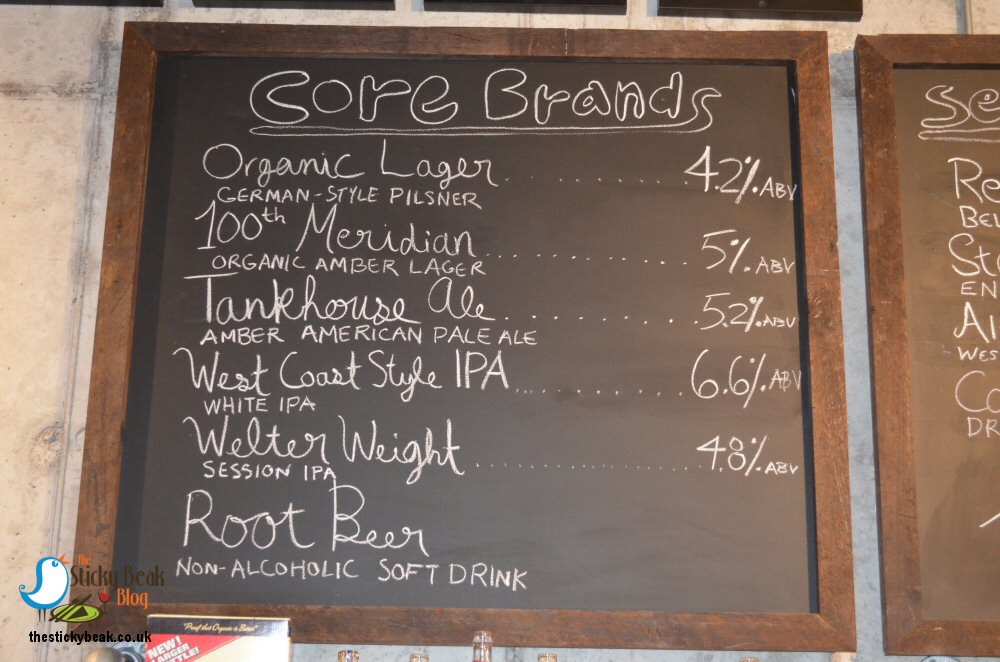 Core Brands
Organic Lager ............... 4.2% ABV
GERMAN-STYLE PILSNER
100th Meridian ............... 5% ABV
ORGANIC AMBER LAGER
Tankhouse Ale ............... 5.2% ABV
AMBER AMERICAN PALE ALE
West Coast Style IPA ............... 6.6% ABV
WHITE IPA
Welter Weight ............... 4.8% ABV
SESSION IPA
Root Beer
NON-ALCOHOLIC SOFT DRINK
Se
Re
BEL
St
EN
Al
WES
Co
DR
The
Sticky Beak
Blog
thestickybeak.co.uk
"Proof that Organic is Better"
NEW!
LARGER
BOTTLE!